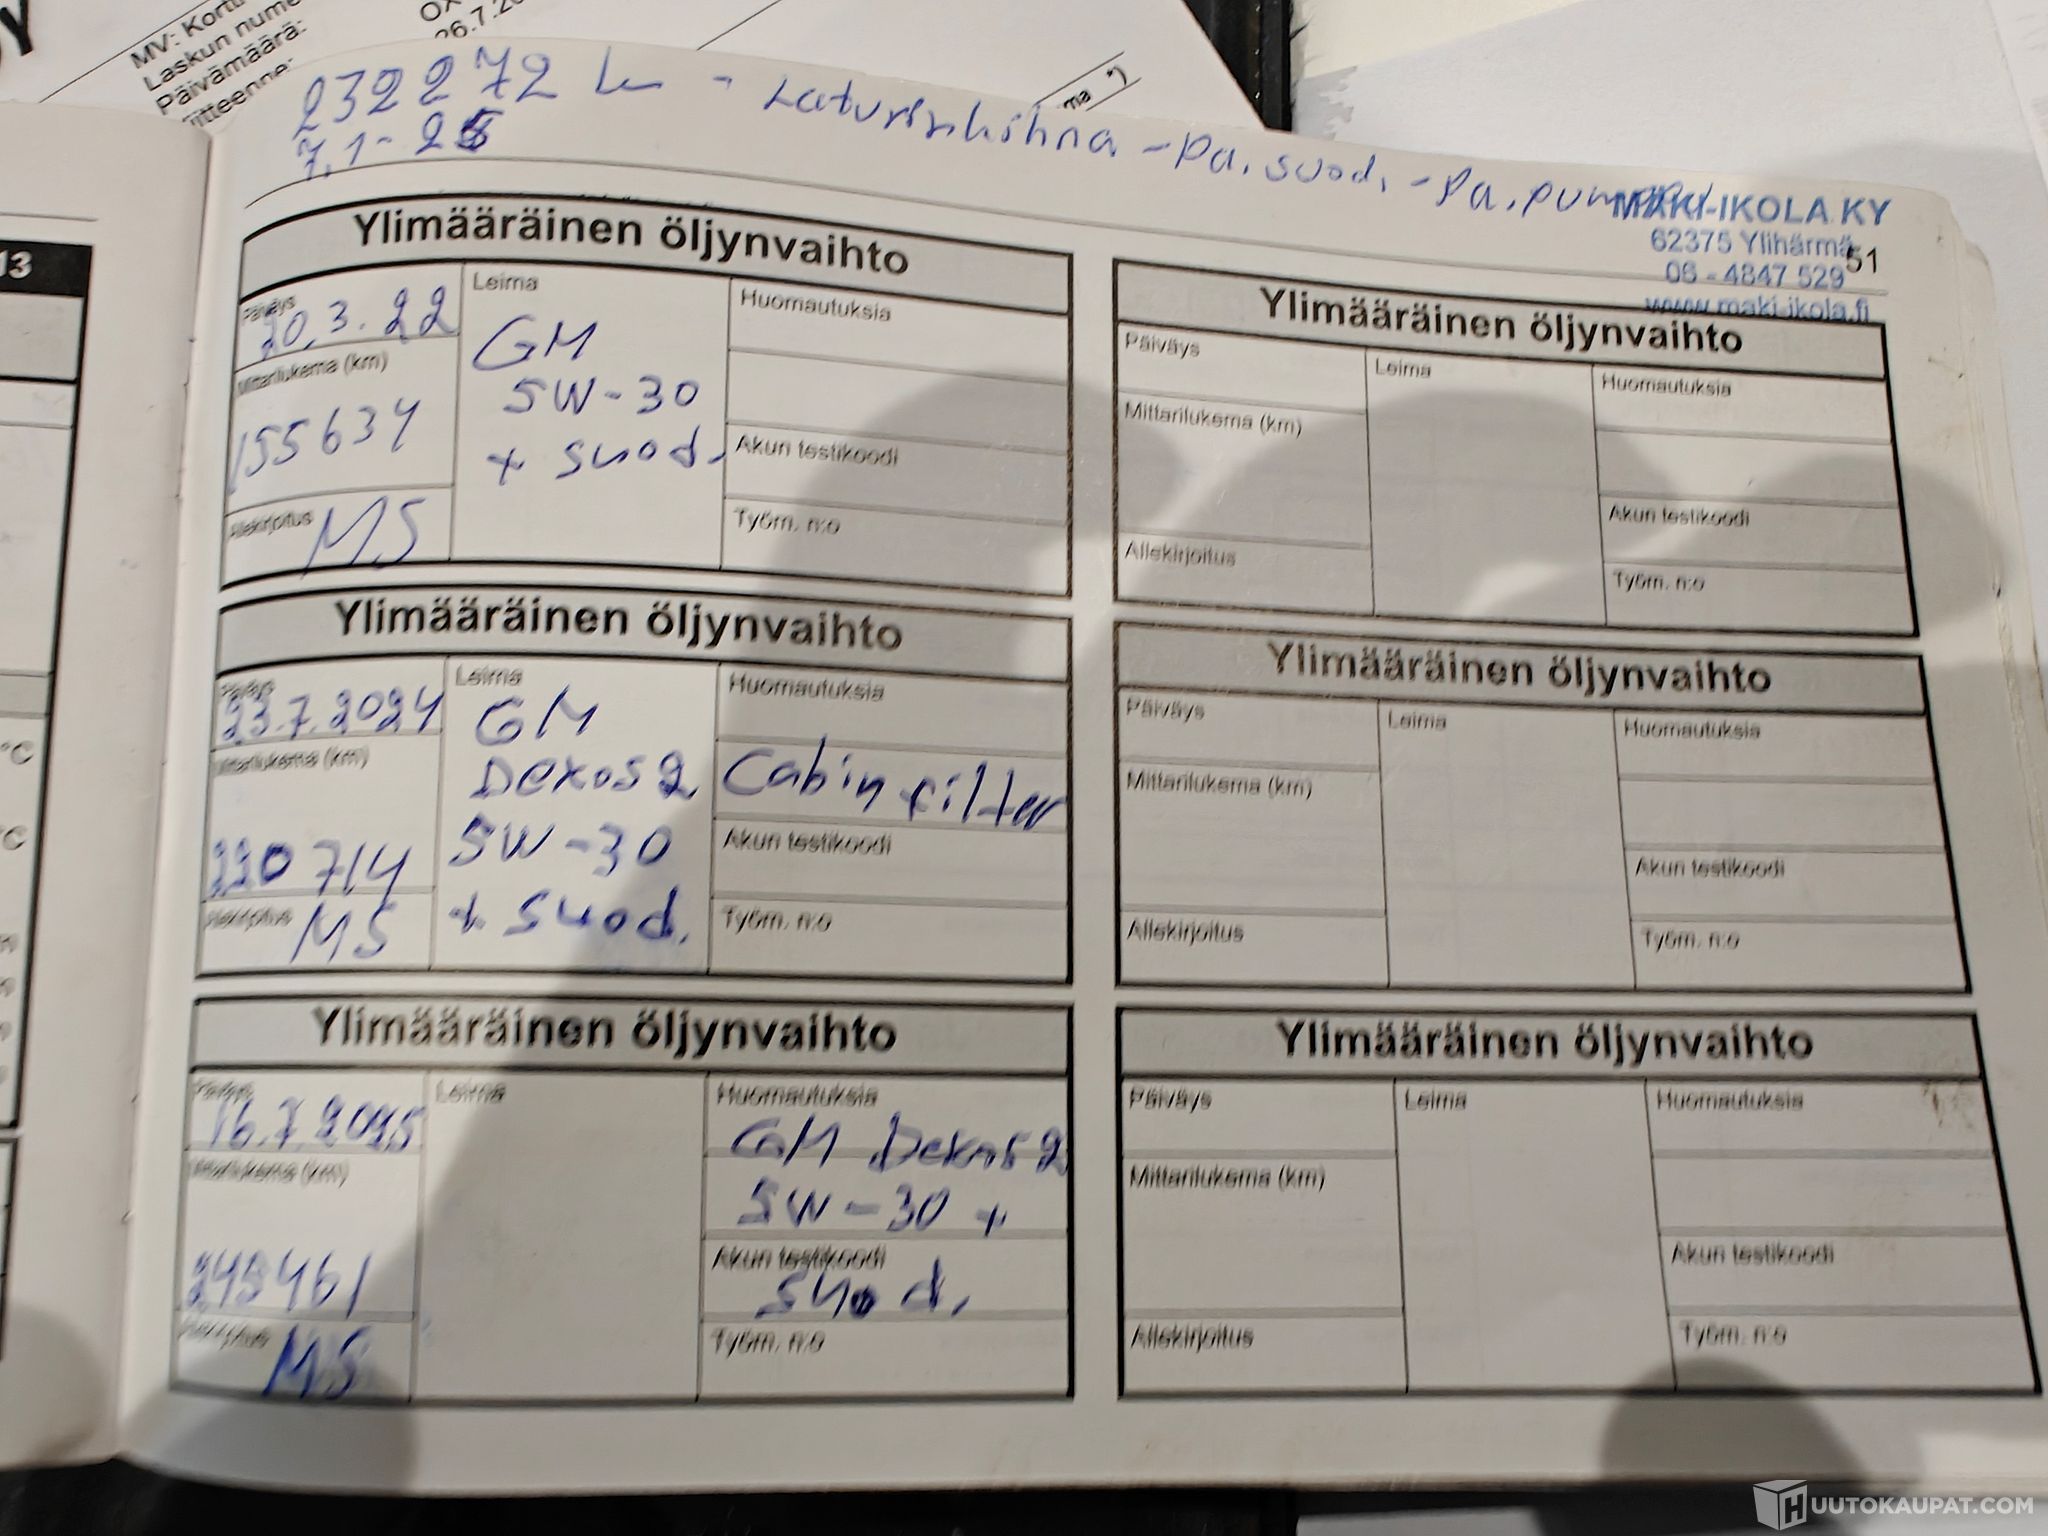 MV: Kortti
Laskun nume
Päivämäärä:
26.7.20
ma *)
232272 km - Laturinhihna - Pa. suod. - Pa. pumppu
7.1-25
MÄKI-IKOLA KY
62375 Ylihärmä
06 - 4847 529
www.maki-ikola.fi
51
13
°C
°C
Ylimääräinen öljynvaihto
Päiväys
20.3.22
Mittarilukema (km)
155634
Allekirjoitus
MS
Leima
GM
5W-30
+ suod.
Huomautuksia
Akun testikoodi
Työm. n:o
Ylimääräinen öljynvaihto
Päiväys
Mittarilukema (km)
Allekirjoitus
Leima
Huomautuksia
Akun testikoodi
Työm. n:o
Ylimääräinen öljynvaihto
Päiväys
23.7.2024
Mittarilukema (km)
220714
Allekirjoitus
MS
Leima
GM
Dexos2
5W-30
+ suod.
Huomautuksia
Cabin filter
Akun testikoodi
Työm. n:o
Ylimääräinen öljynvaihto
Päiväys
Mittarilukema (km)
Allekirjoitus
Leima
Huomautuksia
Akun testikoodi
Työm. n:o
Ylimääräinen öljynvaihto
Päiväys
16.7.2025
Mittarilukema (km)
245461
Allekirjoitus
MS
Leima
Huomautuksia
GM Dexos2
5W-30 +
Akun testikoodi
suod.
Työm. n:o
Ylimääräinen öljynvaihto
Päiväys
Mittarilukema (km)
Allekirjoitus
Leima
Huomautuksia
Akun testikoodi
Työm. n:o
HUUTOKAUPAT.COM